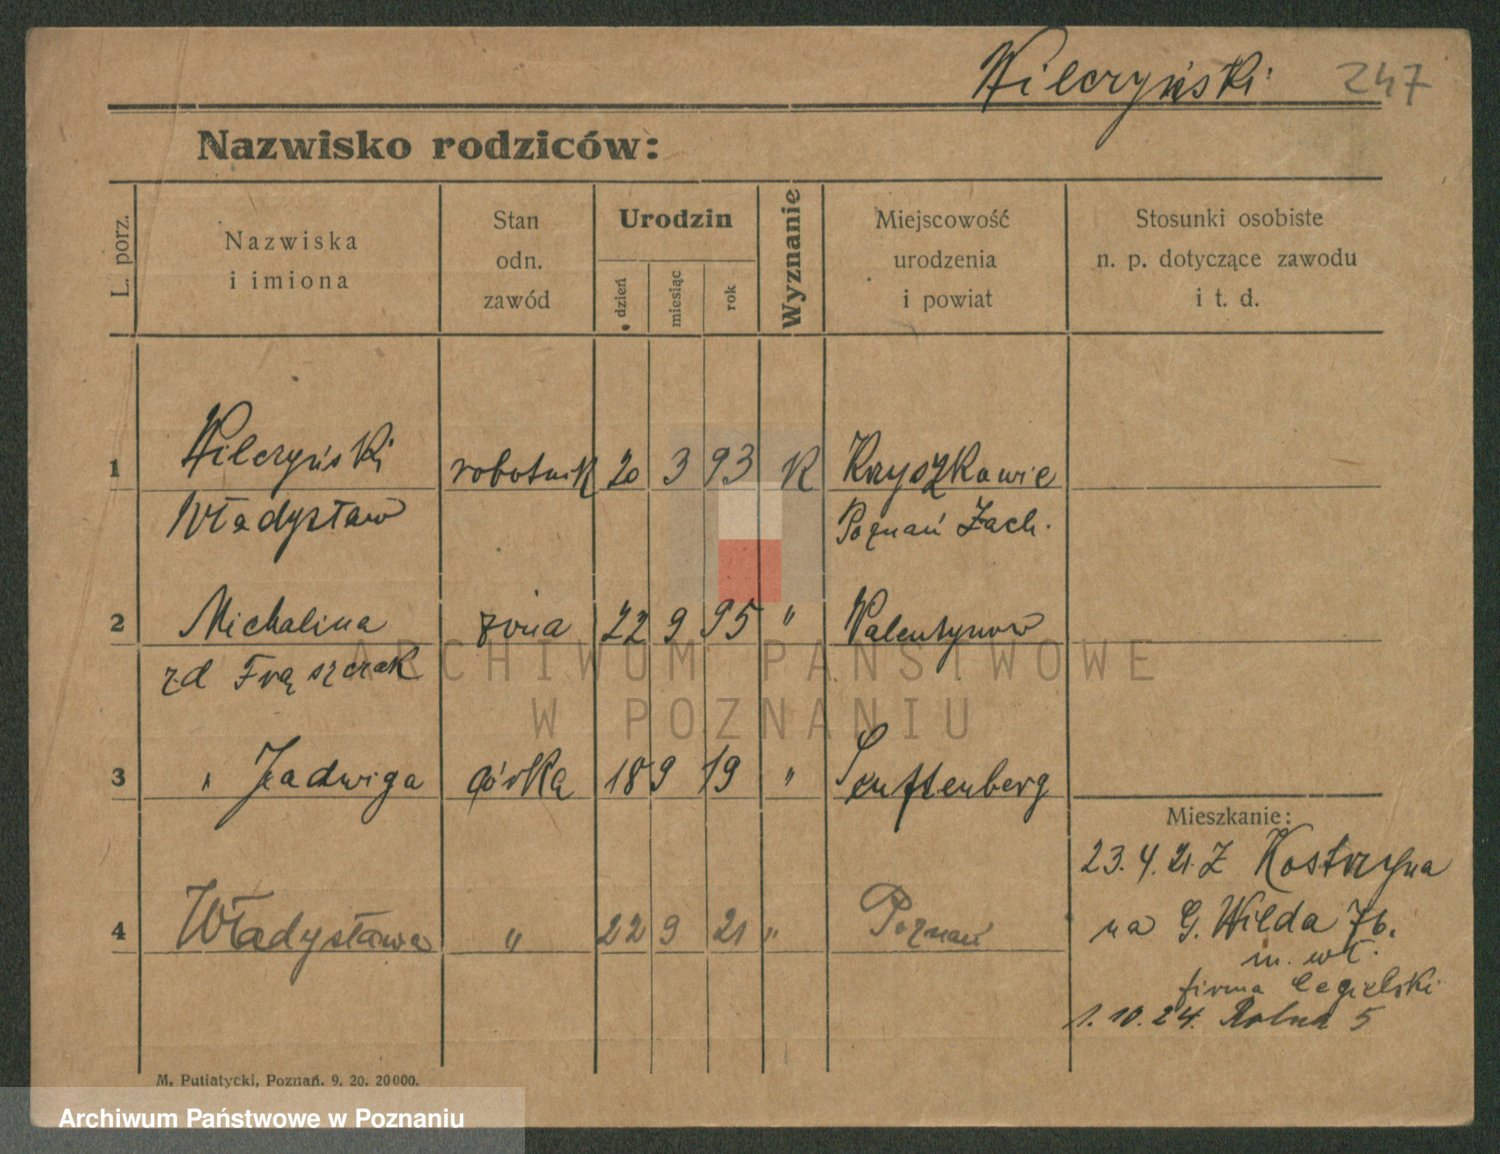 Wilczyński 247
Nazwisko rodziców:
L. porz.
Nazwiska
i imiona
Stan
odn.
zawód
Urodzin
dzień
miesiąc
rok
Wyznanie
Miejscowość
urodzenia
i powiat
Stosunki osobiste
n. p. dotyczące zawodu
i t. d.
1 Wilczyński robotnik 20 3 93 K Krzyszkowie
Władysław Poznań Zach.
2 Michalina żona 22 9 95 " Walentynowo
zd Frąszczak
3 " Jadwiga córka 18 9 19 " Senftenberg
Mieszkanie:
23. 4. 21. Z Kostrzyna
4 Władysława " 22 9 21 " Poznań
na G. Wilda 76.
m. wł.
firma Cegielski
1. 10. 24. Rolna 5
M. Putiatycki, Poznań. 9. 20. 20000.
ARCHIWUM PAŃSTWOWE
W POZNANIU
Archiwum Państwowe w Poznaniu